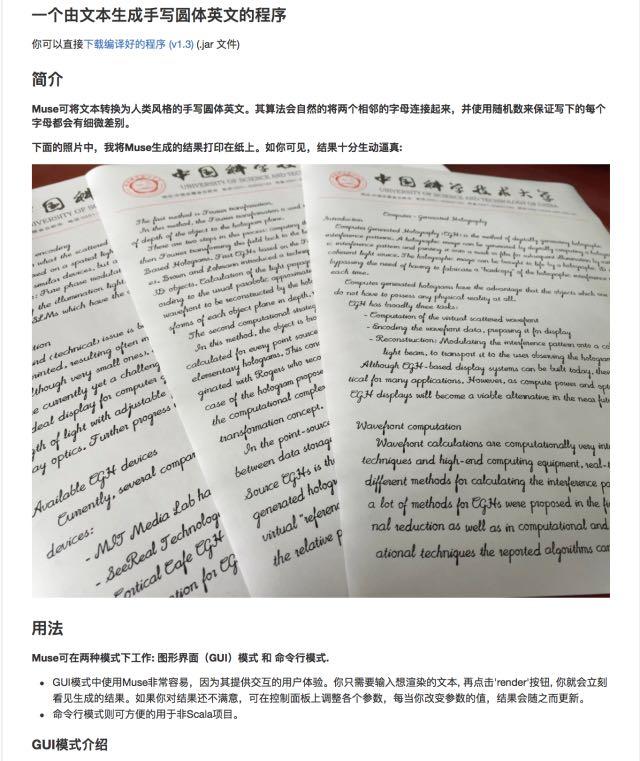 一个由文本生成手写圆体英文的程序
你可以直接下载编译好的程序 (v1.3) (.jar 文件)
简介
Muse可将文本转换为人类风格的手写圆体英文。其算法会自然的将两个相邻的字母连接起来，并使用随机数来保证写下的每个
字母都会有细微差别。
下面的照片中，我将Muse生成的结果打印在纸上。如你可见，结果十分生动逼真:
encoding
what the scattered
ed on a spatial ligh
similar devices, but a
: Pure phase modulat
y the illumination light
SLMs which have the
tion
nd (technical) issue is b
mented, resulting often in
lthough very small ones.
e currently yet a challeng
deal display for computer g
gth of light with adjustable
ay optics. Further progress
Available CGH devices
Currently, several compan
devices:
- MIT Media Lab ha
- SeeReal Technolog
- Cortical Cafe CGH
tion for CG
中国科学技
UNIVERSITY OF SCIENCE AND TECH
The first method is Fourier transformation.
In this method, the Fourier transformation is used
of depth of the object to the hologram plane.
There are two steps in the process: computing th
then Fourier transforming the field back to the
Based Holograms. First CGHs based on the F
es. Brown and Lohmann introduced a techniq
3D objects. Calculation of the light propag
ording to the usual parabolic approximat
wavefront to be reconstructed by the hol
sforms of each object plane in depth,
The second computational strateg
In this method, the object is bro
calculated for every point source
elementary holograms. This conc
ginated with Rogers who reco
case of the hologram propose
the computational complex
transformation concept.
In the point-source
between data storage
Source CGHs is the
generated hologr
virtual "referenc
the relative p
中国科学技术大学
UNIVERSITY OF SCIENCE AND TECHNOLOGY OF CHINA
Computer - generated Holography
Introduction
Computer Generated Holography (CGH) is the method of digitally generating holographic
interference patterns. A holographic image can be generated by digitally computing a hologra
ic interference pattern and printing it onto a mask or film for subsequent illumination by sui
coherent light source. The holographic image can be brought to life by a holographic 3D
bypassing the need of having to fabricate a "hardcopy" of the holographic interference
each time.
Computer generated holograms have the advantage that the objects which one
do not have to possess any physical reality at all.
CGH has broadly three tasks:
- Computation of the virtual scattered wavefront
- Encoding the wavefront data, preparing it for display
- Reconstruction: Modulating the interference pattern onto a co
light beam, to transport it to the user observing the hologram
Although CGH-based display systems can be built today, thei
tical for many applications. However, as compute power and opt
CGH displays will become a viable alternative in the near futu
Wavefront computation
Wavefront calculations are computationally very inte
techniques and high-end computing equipment, real-t
different methods for calculating the interference pa
a lot of methods for CGHs were proposed in the fi
nal reduction as well as in computational and
ational techniques the reported algorithms can
用法
Muse可在两种模式下工作: 图形界面（GUI）模式 和 命令行模式.
• GUI模式中使用Muse非常容易，因为其提供交互的用户体验。你只需要输入想渲染的文本, 再点击'render'按钮, 你就会立刻
看见生成的结果。如果你对结果还不满意，可在控制面板上调整各个参数，每当你改变参数的值，结果会随之而更新。
• 命令行模式则可方便的用于非Scala项目。
GUI模式介绍